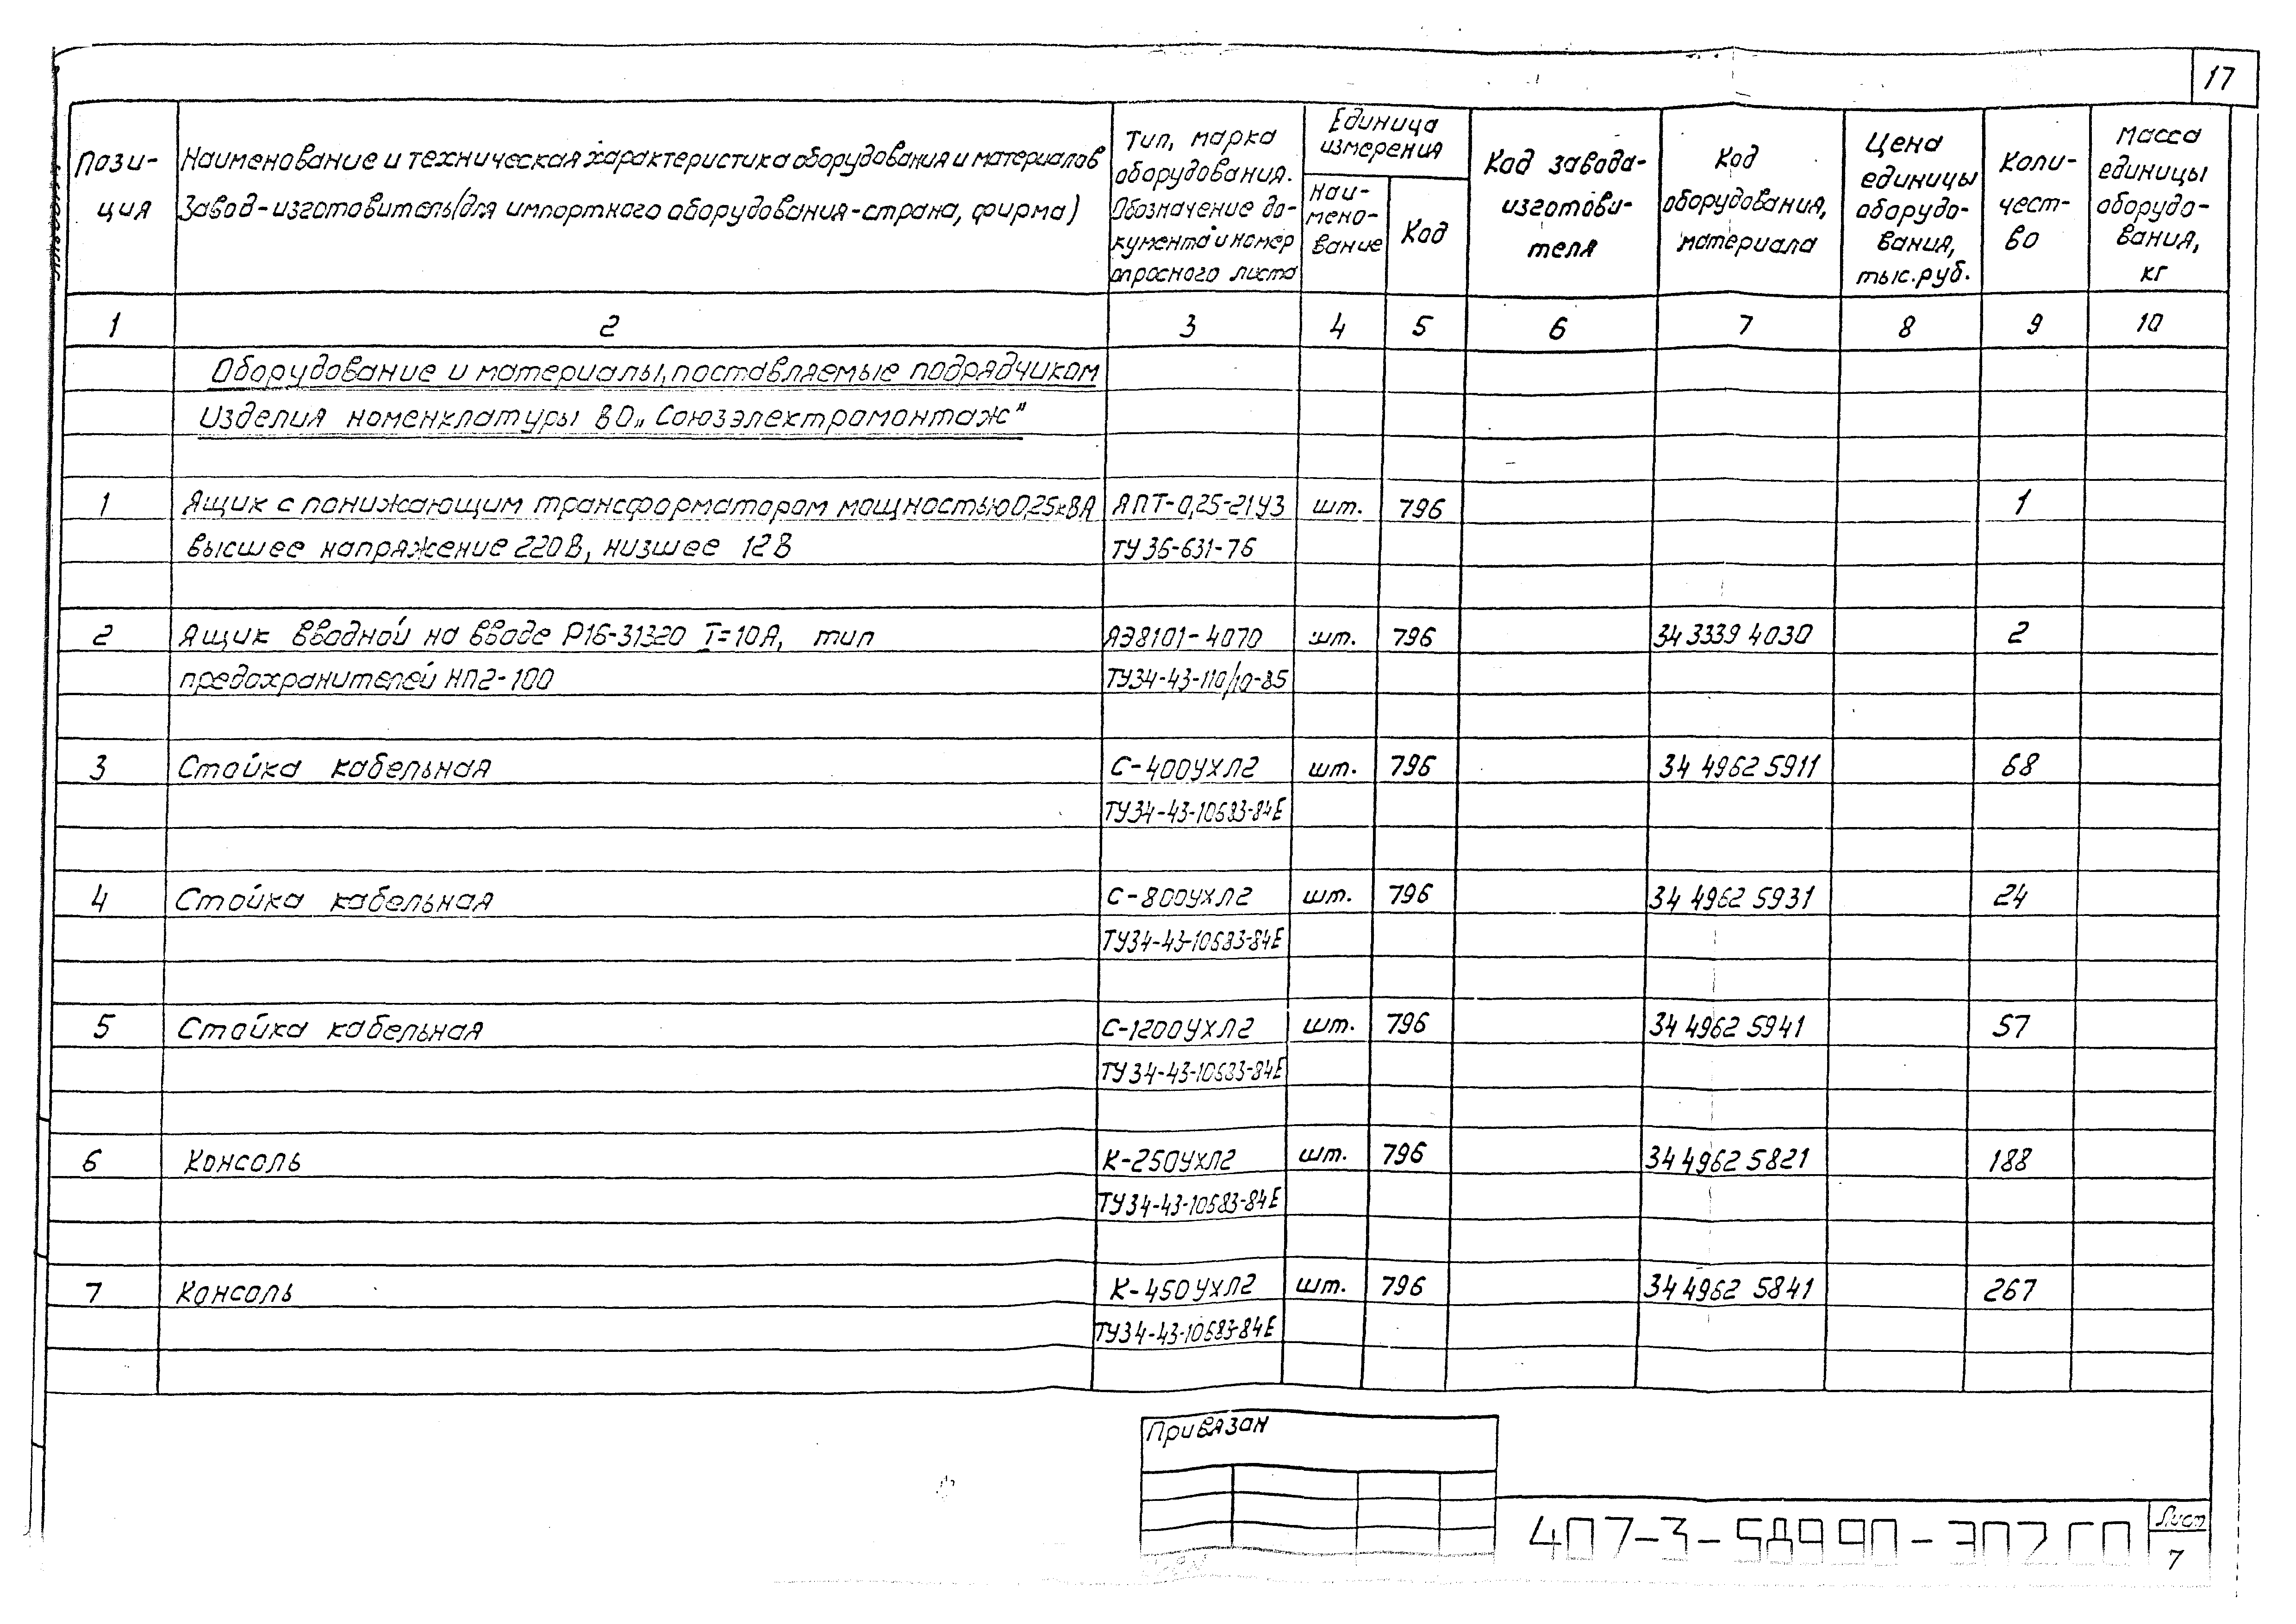 17
Пози-
ция
Наименование и техническая характеристика оборудования и материалов
Завод-изготовитель (для импортного оборудования-страна, фирма)
Тип, марка
оборудования.
Обозначение до-
кумента и номер
опросного листа
Единица
измерения
Наи-
мено-
вание
Код
Код завода-
изготови-
теля
Код
оборудования,
материала
Цена
единицы
оборудо-
вания,
тыс.руб.
Коли-
чест-
во
Масса
единицы
оборудо-
вания,
кг
1 2 3 4 5 6 7 8 9 10
Оборудование и материалы, поставляемые подрядчиком
Изделия номенклатуры ВО „Союзэлектромонтаж"
1 Ящик с понижающим трансформатором мощностью 0,25кВА ЯПТ-0,25-21У3 шт. 796 1
высшее напряжение 220В, низшее 12В ТУ 36-631-76
2 Ящик вводной на вводе Р16-31320 I=10А, тип ЯЭ8101-4070 шт. 796 34 3339 4030 2
предохранителей НП2-100 ТУ34-43-110/10-85
3 Стойка кабельная С-400УХЛ2 шт. 796 34 4962 5911 68
ТУ34-43-10683-84Е
4 Стойка кабельная С-800УХЛ2 шт. 796 34 4962 5931 24
ТУ34-43-10683-84Е
5 Стойка кабельная С-1200УХЛ2 шт. 796 34 4962 5941 57
ТУ34-43-10683-84Е
6 Консоль К-250УХЛ2 шт. 796 34 4962 5821 188
ТУ34-43-10683-84Е
7 Консоль К-450УХЛ2 шт. 796 34 4962 5841 267
ТУ34-43-10683-84Е
Привязан
Лист
7